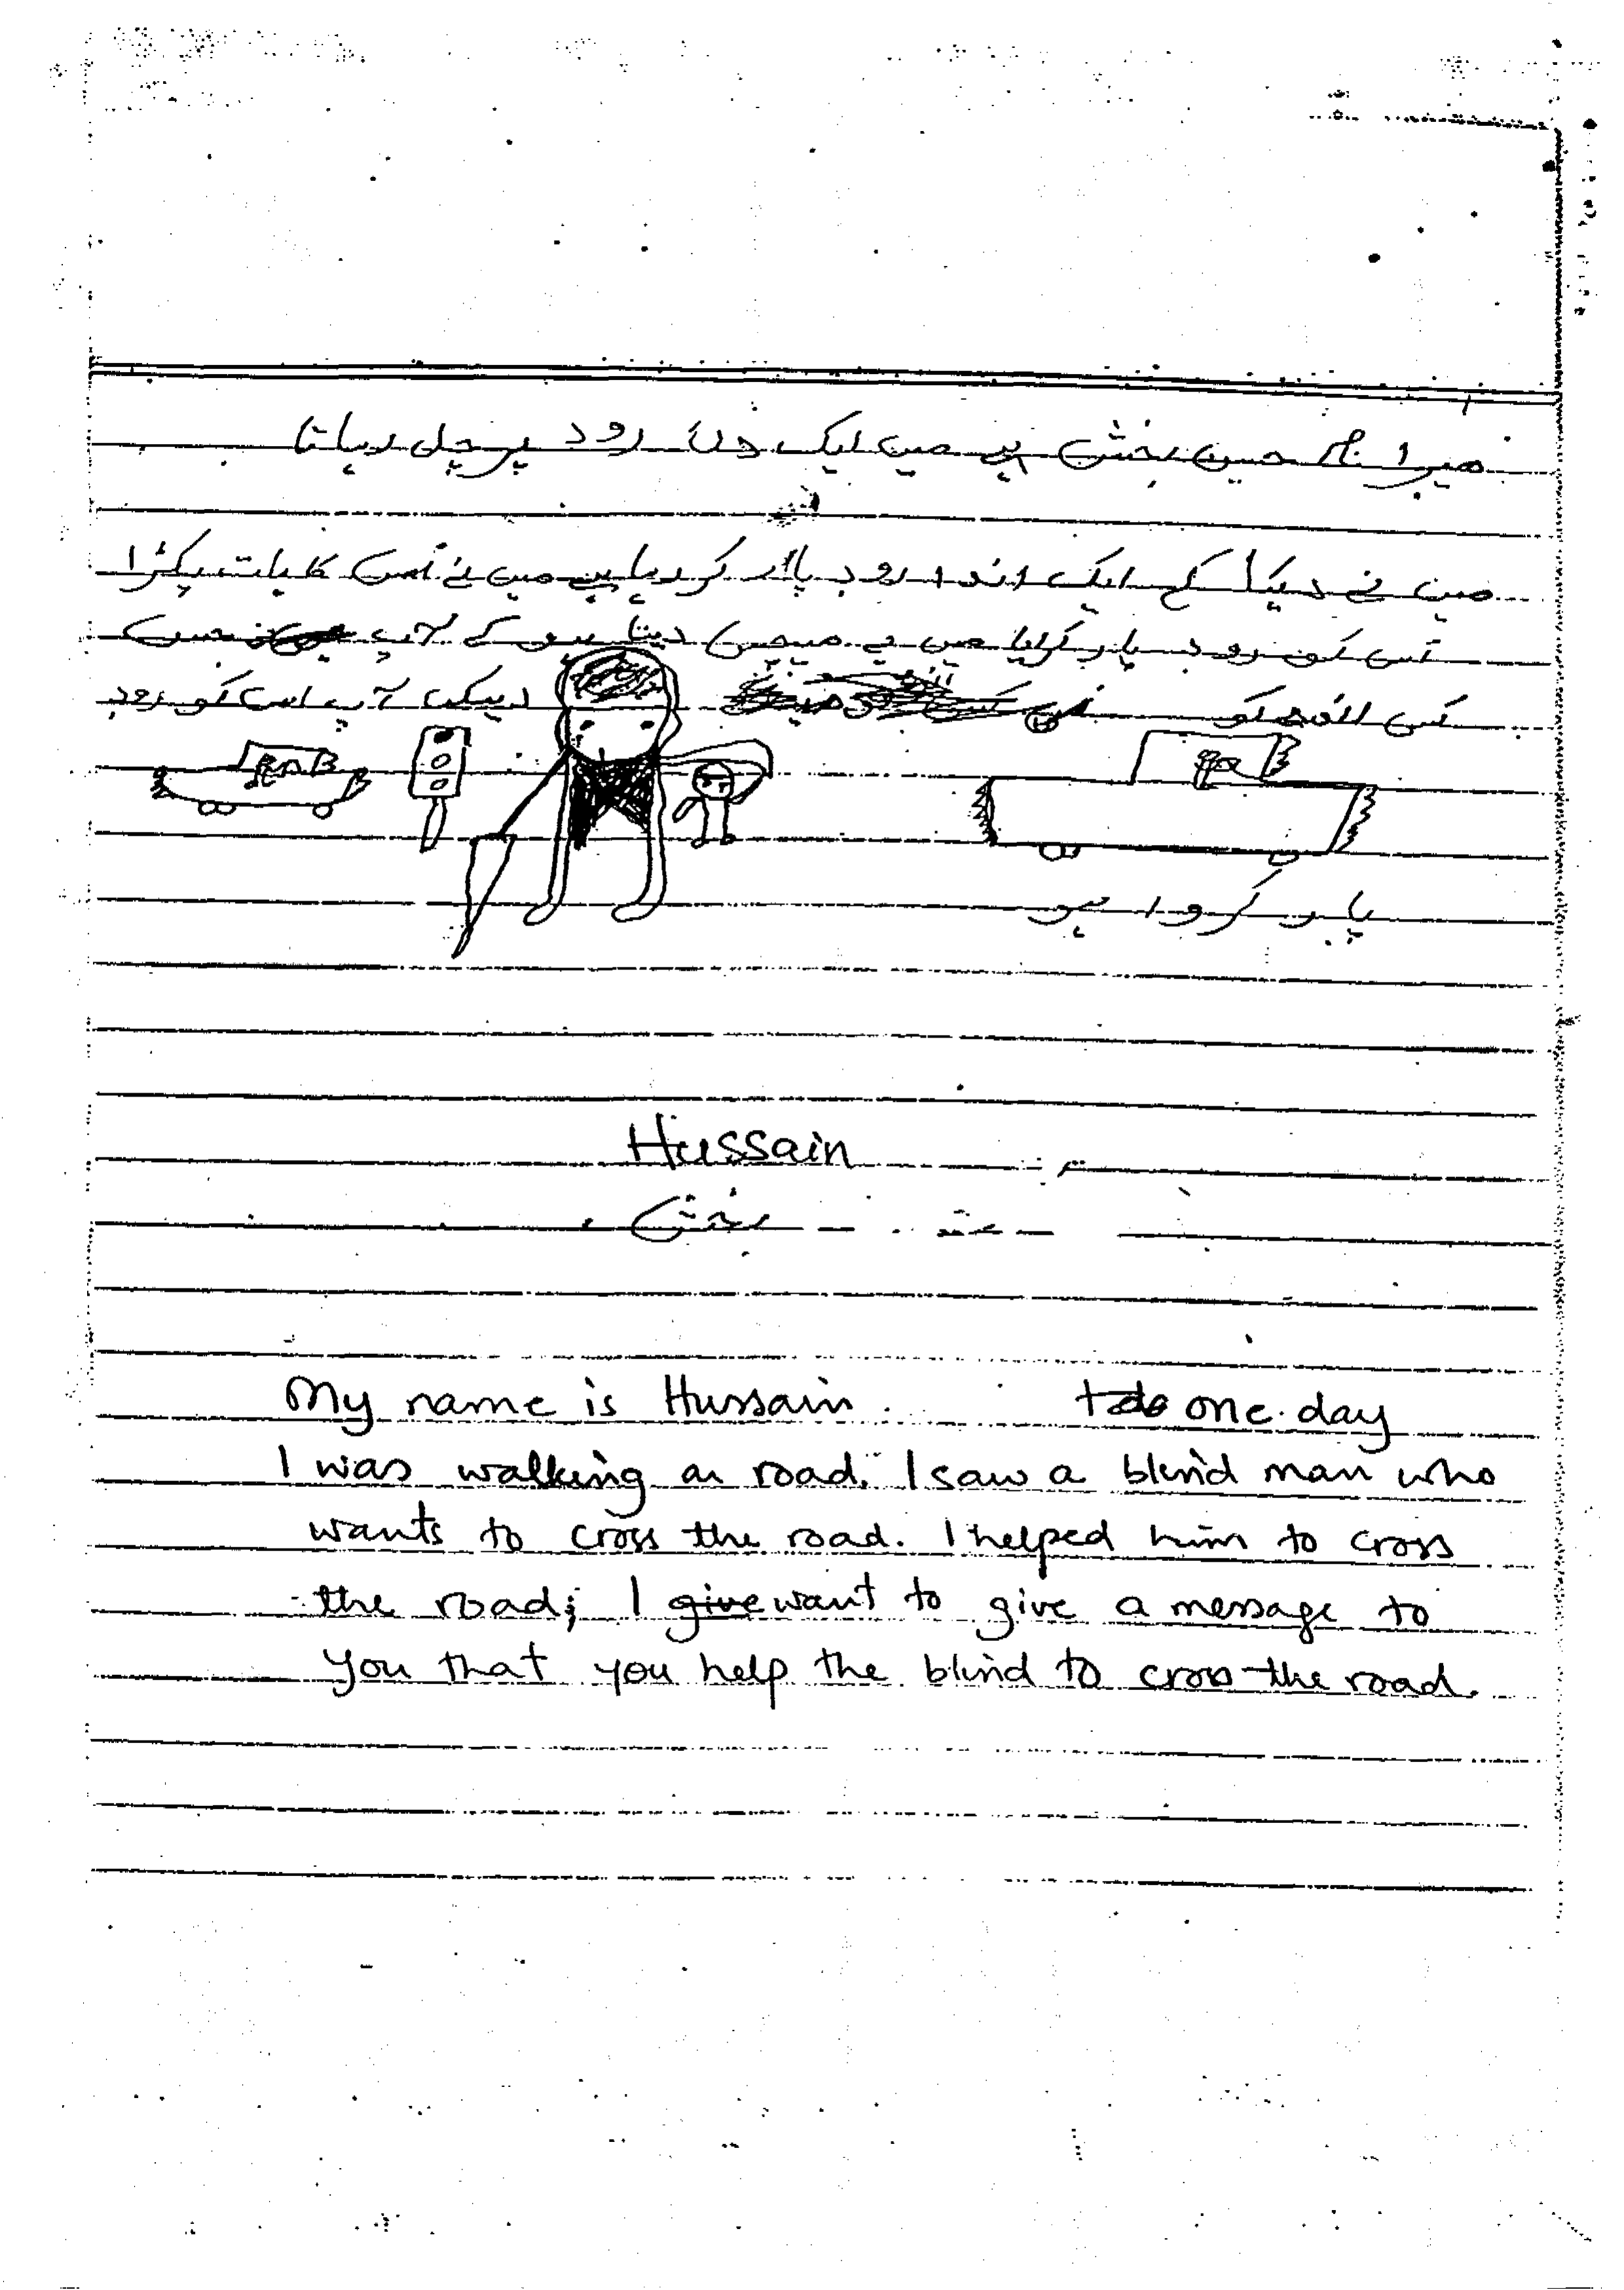 میرا نام حسین بخش ہے میں ایک دن رود پر چل رہا تا
میں نے دیکا کے ایک اندا رود پاار کر رہا ہے میں نے اُس کا ہات پکڑا
اُس کو رود پار کرایا میں یے میسج دیتا ہو کے آپ
کسی اندے کو دیکں آپ اس کو رود
پار کروا ہو
Hussain
بخش
My name is Hussain one day
I was walking on road. I saw a blind man who
wants to cross the road. I helped him to cross
the road; I give want to give a message to
you that you help the blind to cross the road.